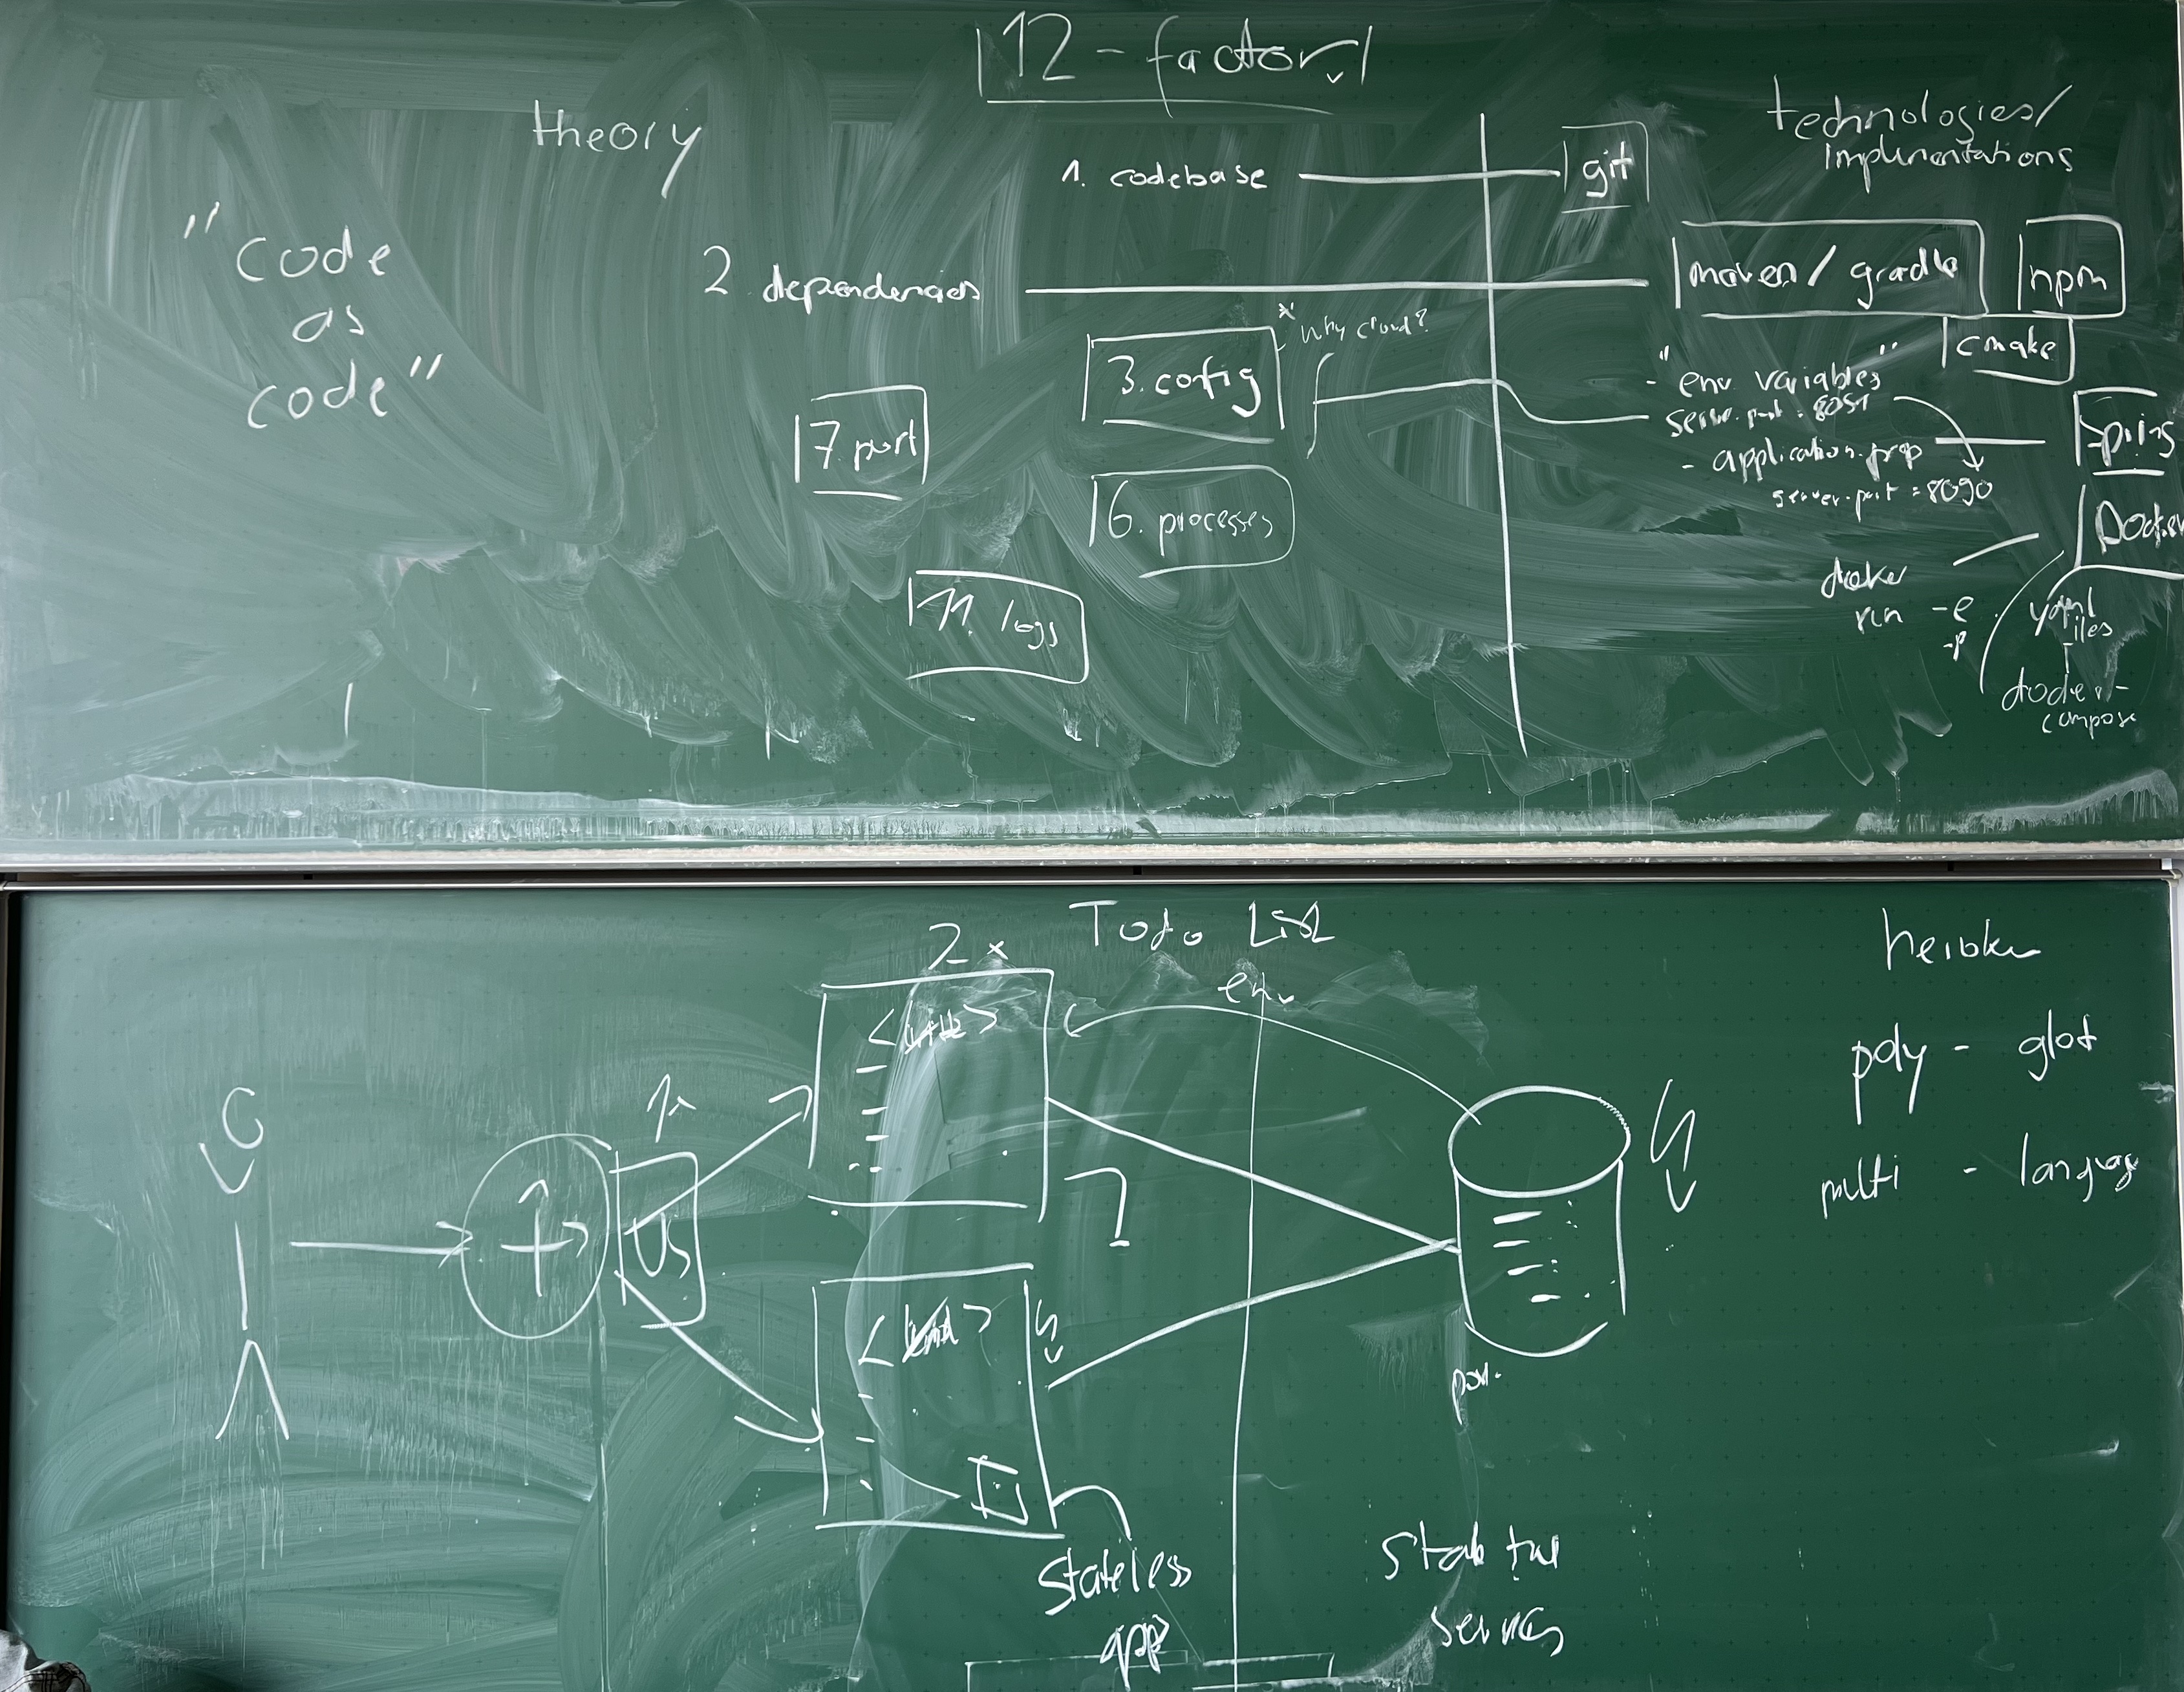 12-factor
theory
technologies/
implementations
"code
as
code"
1. codebase
git
2 dependencies
maven / gradle
npm
cmake
x why cloud?
3. config
7. port
6. processes
11. logs
" "
- env variables
server.port = 8051
- application.prop
server.port = 8090
Spring
Docker
docker
run -e
-p
yaml
files
docker-
compose
Todo List
2x
env
heroku
poly - glot
multi - languag
?
Stateless
app
Stateful
services